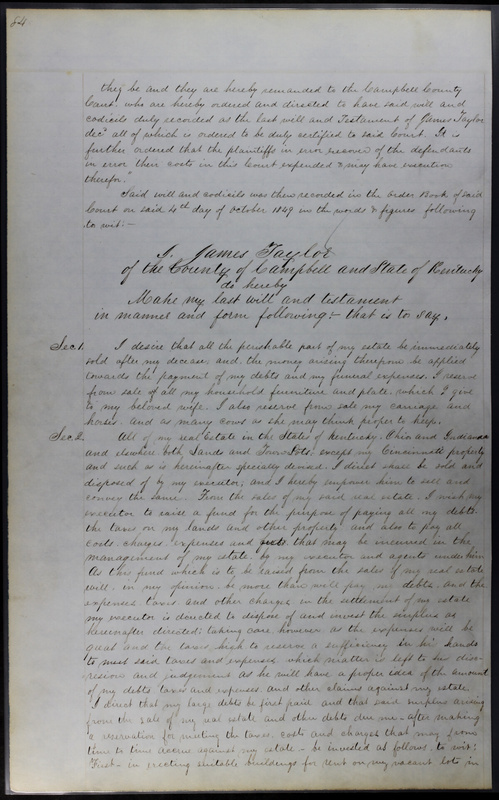 84
they be and they are hereby remanded to the Campbell County
Court who are hereby ordered and directed to have said will and
codicils duly recorded as the last will and Testament of James Taylor
decd all of which is ordered to be duly certified to said Court. It is
further ordered that the plaintiffs in error recover of the defendants
in error their costs in this Court expended & may have execution
therefor."
Said will and codicils was then recorded in the Order Book of said
Court on said 4th day of October 1849 in the words & figures following
to wit:-
I. James Taylor
of the County of Campbell and State of Kentucky
do hereby
Make my last will and testament
in manner and form following:- that is to say.
Sec. 1. I desire that all the perishable part of my estate be immediately
sold after my decease, and, the money arising therefrom be applied
towards the payment of my debts and my funeral expenses. I reserve
from sale of all my household furniture and plate, which I give
to my beloved wife. I also reserve from sale my carriage and
horses and as many cows as she may think proper to keep.
Sec. 2. All of my real Estate in the States of Kentucky, Ohio and Indiana
and elsewhere both Lands and Town Lots, except my Cincinnati property
and such as is hereinafter specially devised. I direct shall be sold and
disposed of by my executor, and I hereby empower him to sell and
convey the same. From the sales of my said real estate, I wish my
executor to raise a fund for the purpose of paying all my debts.
the taxes on my lands and other property and also to pay all
costs, charges, expenses and that may be incurred in the
management of my estate by my executor and agents under him
As the fund which is to be raised from the sales of my real estate
will, in my opinion, be more than will pay my debts, and the
expenses, taxes and other charges in the settlement of my estate
my executor is directed to dispose of and invest the surplus as
hereinafter directed; taking care, however, as the expenses will be
great and the taxes high to reserve a sufficiency in his hands
to meet said taxes and expenses, which matter is left to his disc-
ression and judgement as he will have a proper idea of the amount
of my debts taxes and expenses, and other claims against my estate
I direct that my large debts be first paid and that said surplus arising
from the sale of my real estate and other debts due me - after making
a reservation for meeting the taxes, costs and charges that may from
time to time accrue against my estate - be invested as follows, to wit:
First - in erecting suitable buildings for rent on my vacant lots in